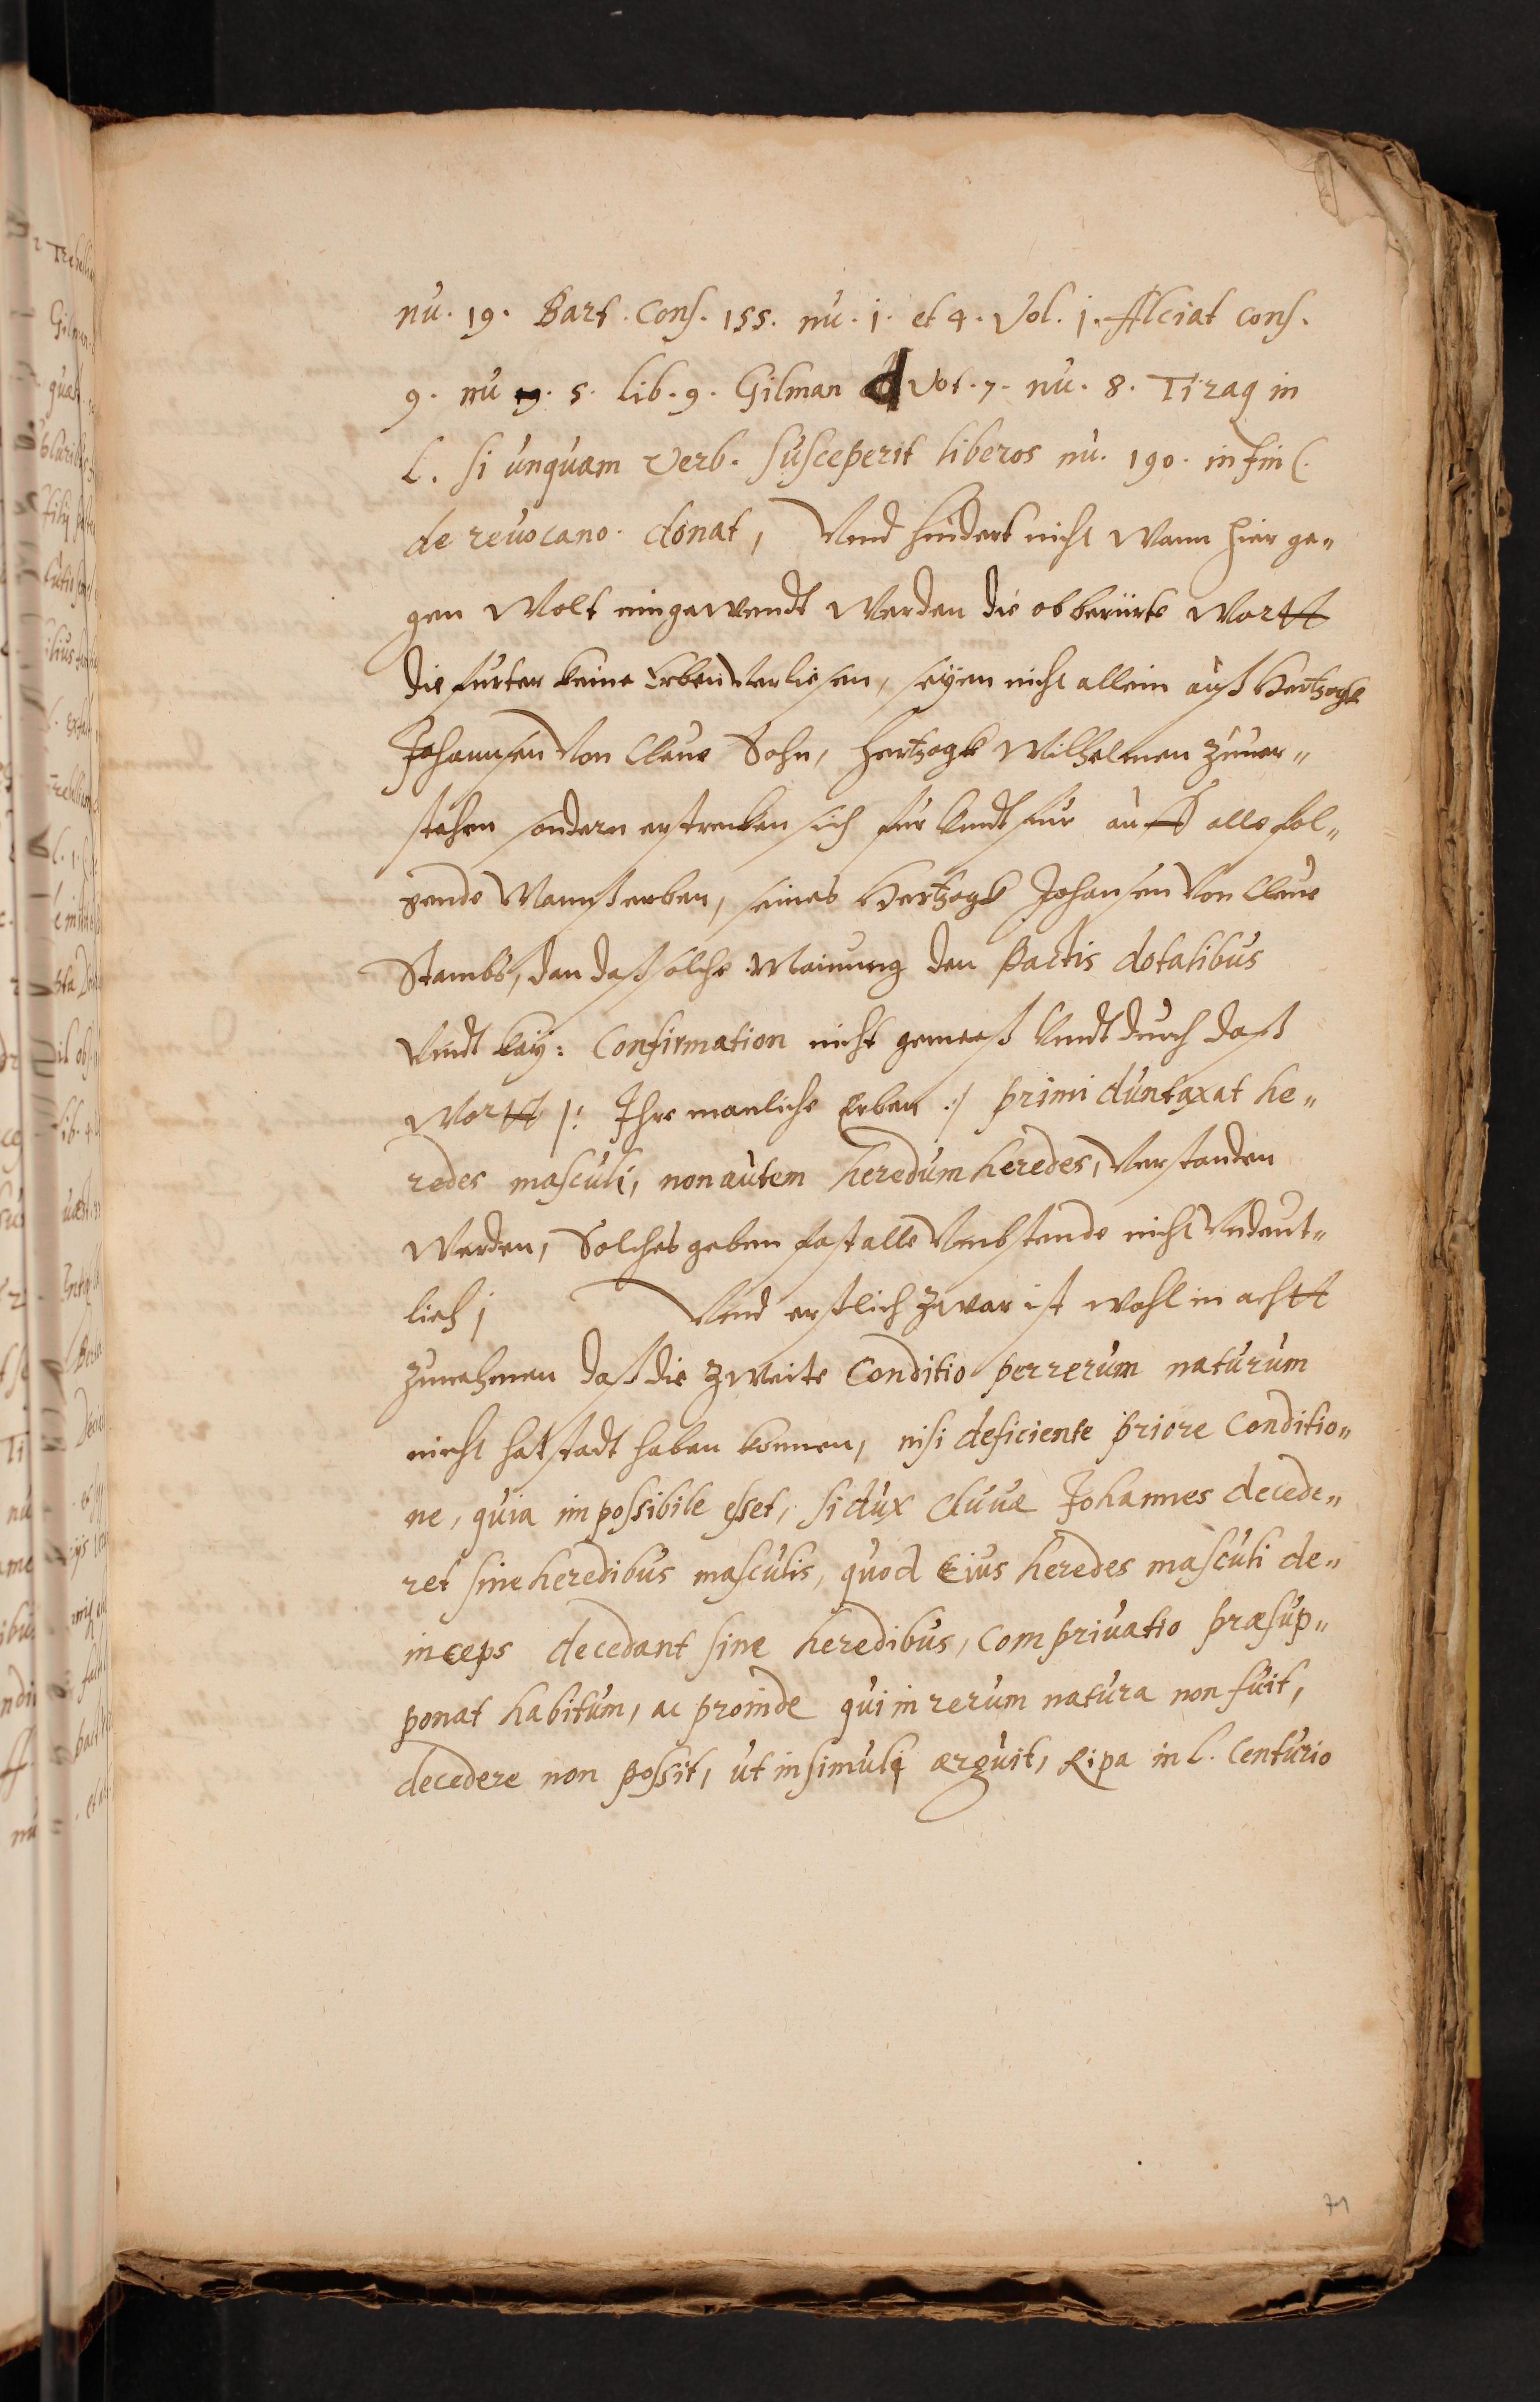 nu. 19. Bart. Cons. 155. nu. j. et 4. Vol. j. Alciat cons.
9. nu 5. lib. 9. Gilman d Vot. 7. nu. 8. Tiraq in
l. si unquam verb. susceperit liberos nu. 190. in fin C.
de reuocano. donat, Vnd hindert nicht wann hier ge„
gen wolt eingewendt werden die obberürte wortt
die furter keine Erben verliesen, seyen nicht allein auß Hertzogk
Johannsen von Cleue Sohn, Hertzogk Wilhelmen zuuer„
stehen sondern erstrecken sich für vndt für auff alle fol„
gende Mannßerben, seines Hertzogk Johansen von Cleue
Stambs, dan daß solche Meinung den Pactis dotalibus
vndt kay: Confirmation nicht gemeeß vndt durch daß
wortt /: Ihre manliche Erben :/ primi duntaxat he„
redes masculi, non autem heredum heredes, verstanden
werden, Solches geben fast alle vmbstende nicht vndeut„
lich; Vnd erstlich zwar ist wohl in achtt
zunehmen daß die zweite Conditio per rerum naturum
nicht hat stadt haben konnen, nisi deficiente priore Conditio„
ne, quia impossibile esset, si dux Cluuæ Johannes decede„
ret sine heredibus masculis, quod Eius heredes masculi de„
inceps decedant sine heredibus, Com priuatio præsup„
ponat habitum, ac proinde qui in rerum natura non fuit,
decedere non possit, ut in simuli arguit, Ripa in l. Centurio
71